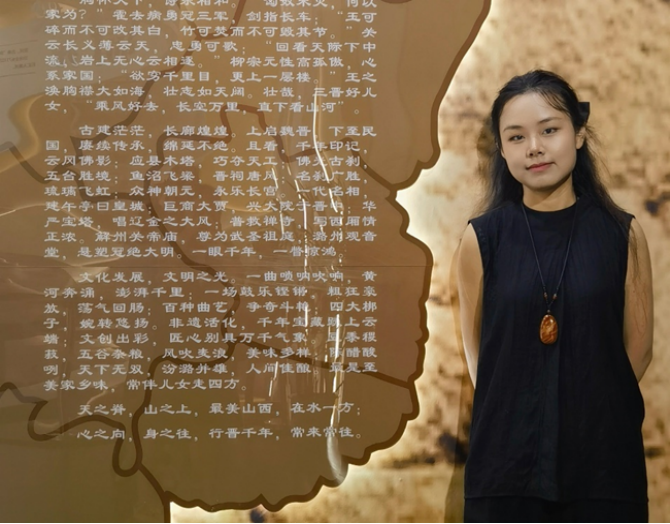 家为？” 霍去病勇冠三军，剑指长车；“玉可
碎而不可改其白，竹可焚而不可毁其节。” 关
云长义薄云天，忠勇可歌；“回看天际下中
流，岩上无心云相逐。” 柳宗元性高孤傲，心
系家国；“欲穷千里目，更上一层楼。” 王之
涣胸襟大如海，壮志如天阔。壮哉，三晋好儿
女，“乘风好去，长空万里，直下看山河”
古建茫茫，长廊煌煌。上启魏晋，下至民
国，赓续传承，绵延不绝。且看，千年印记，
云冈佛影；应县木塔，巧夺天工；佛光古刹，
五台胜境；鱼沼飞梁，晋祠唐风；名刹广胜，
琉璃飞虹；众神朝元，永乐长宫；一代名相，
建午亭曰皇城；巨商大贾，兴大院于晋中；华
严宝塔，唱辽金之大风；普救禅寺，写西厢情
正浓。解州关帝庙，尊为武圣祖庭；潞州观音
堂，悬塑冠绝大明。一眼千年，一瞥惊鸿。
文化发展，文明之光。一曲唢呐吹响，黄
河奔涌，澎湃千里；一场鼓乐铿锵，粗狂豪
放，荡气回肠；百种曲艺，争奇斗艳；四大梆
子，婉转悠扬。非遗活化，千年宝藏跃上云
端；文创出彩，匠心别具万千气象。
菽，五谷杂粮，风吹麦浪，美味多样；醋酸
咧，天下无双；汾潞并雄，人间佳酿。至
美家乡味，常伴儿女走四方。
天之脊，山之上，最美山西，在水一方；
心之向，身之往，行晋千年，常来常往。